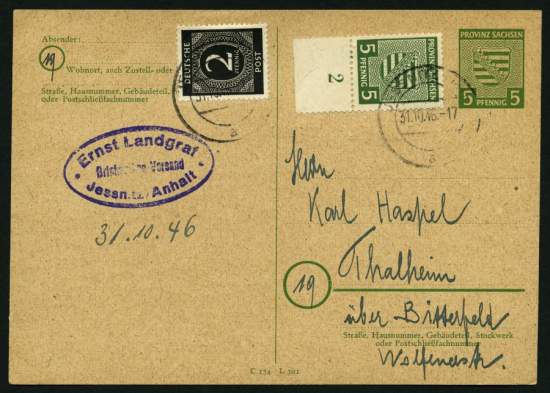 Absender:
19
Wohnort, auch Zustell- oder
Straße, Hausnummer, Gebäudeteil,
oder Postschließfachnummer
DEUTSCHE
2
PFENNIG
POST
2
5
PFENNIG
PROVINZ SACHSEN
5
PROVINZ SACHSEN
5 PFENNIG 5
31.10.46.-17
a
a
Ernst Landgraf
Versand
Jessnitz/Anhalt
31.10.46
Herrn
Karl Haspel
19
Thalheim
über Bitterfeld
Straße, Hausnummer, Gebäudeteil, Stockwerk
oder Postschließfachnummer
C 154